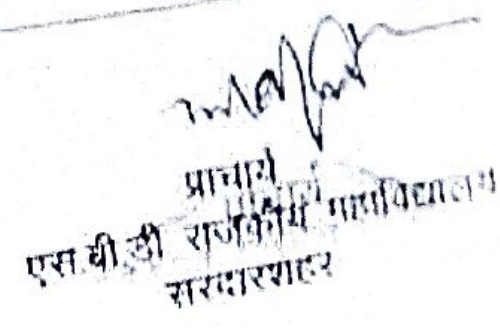 प्राचार्य
एस.बी.डी राजकीय महाविद्यालय
सरदारशहर